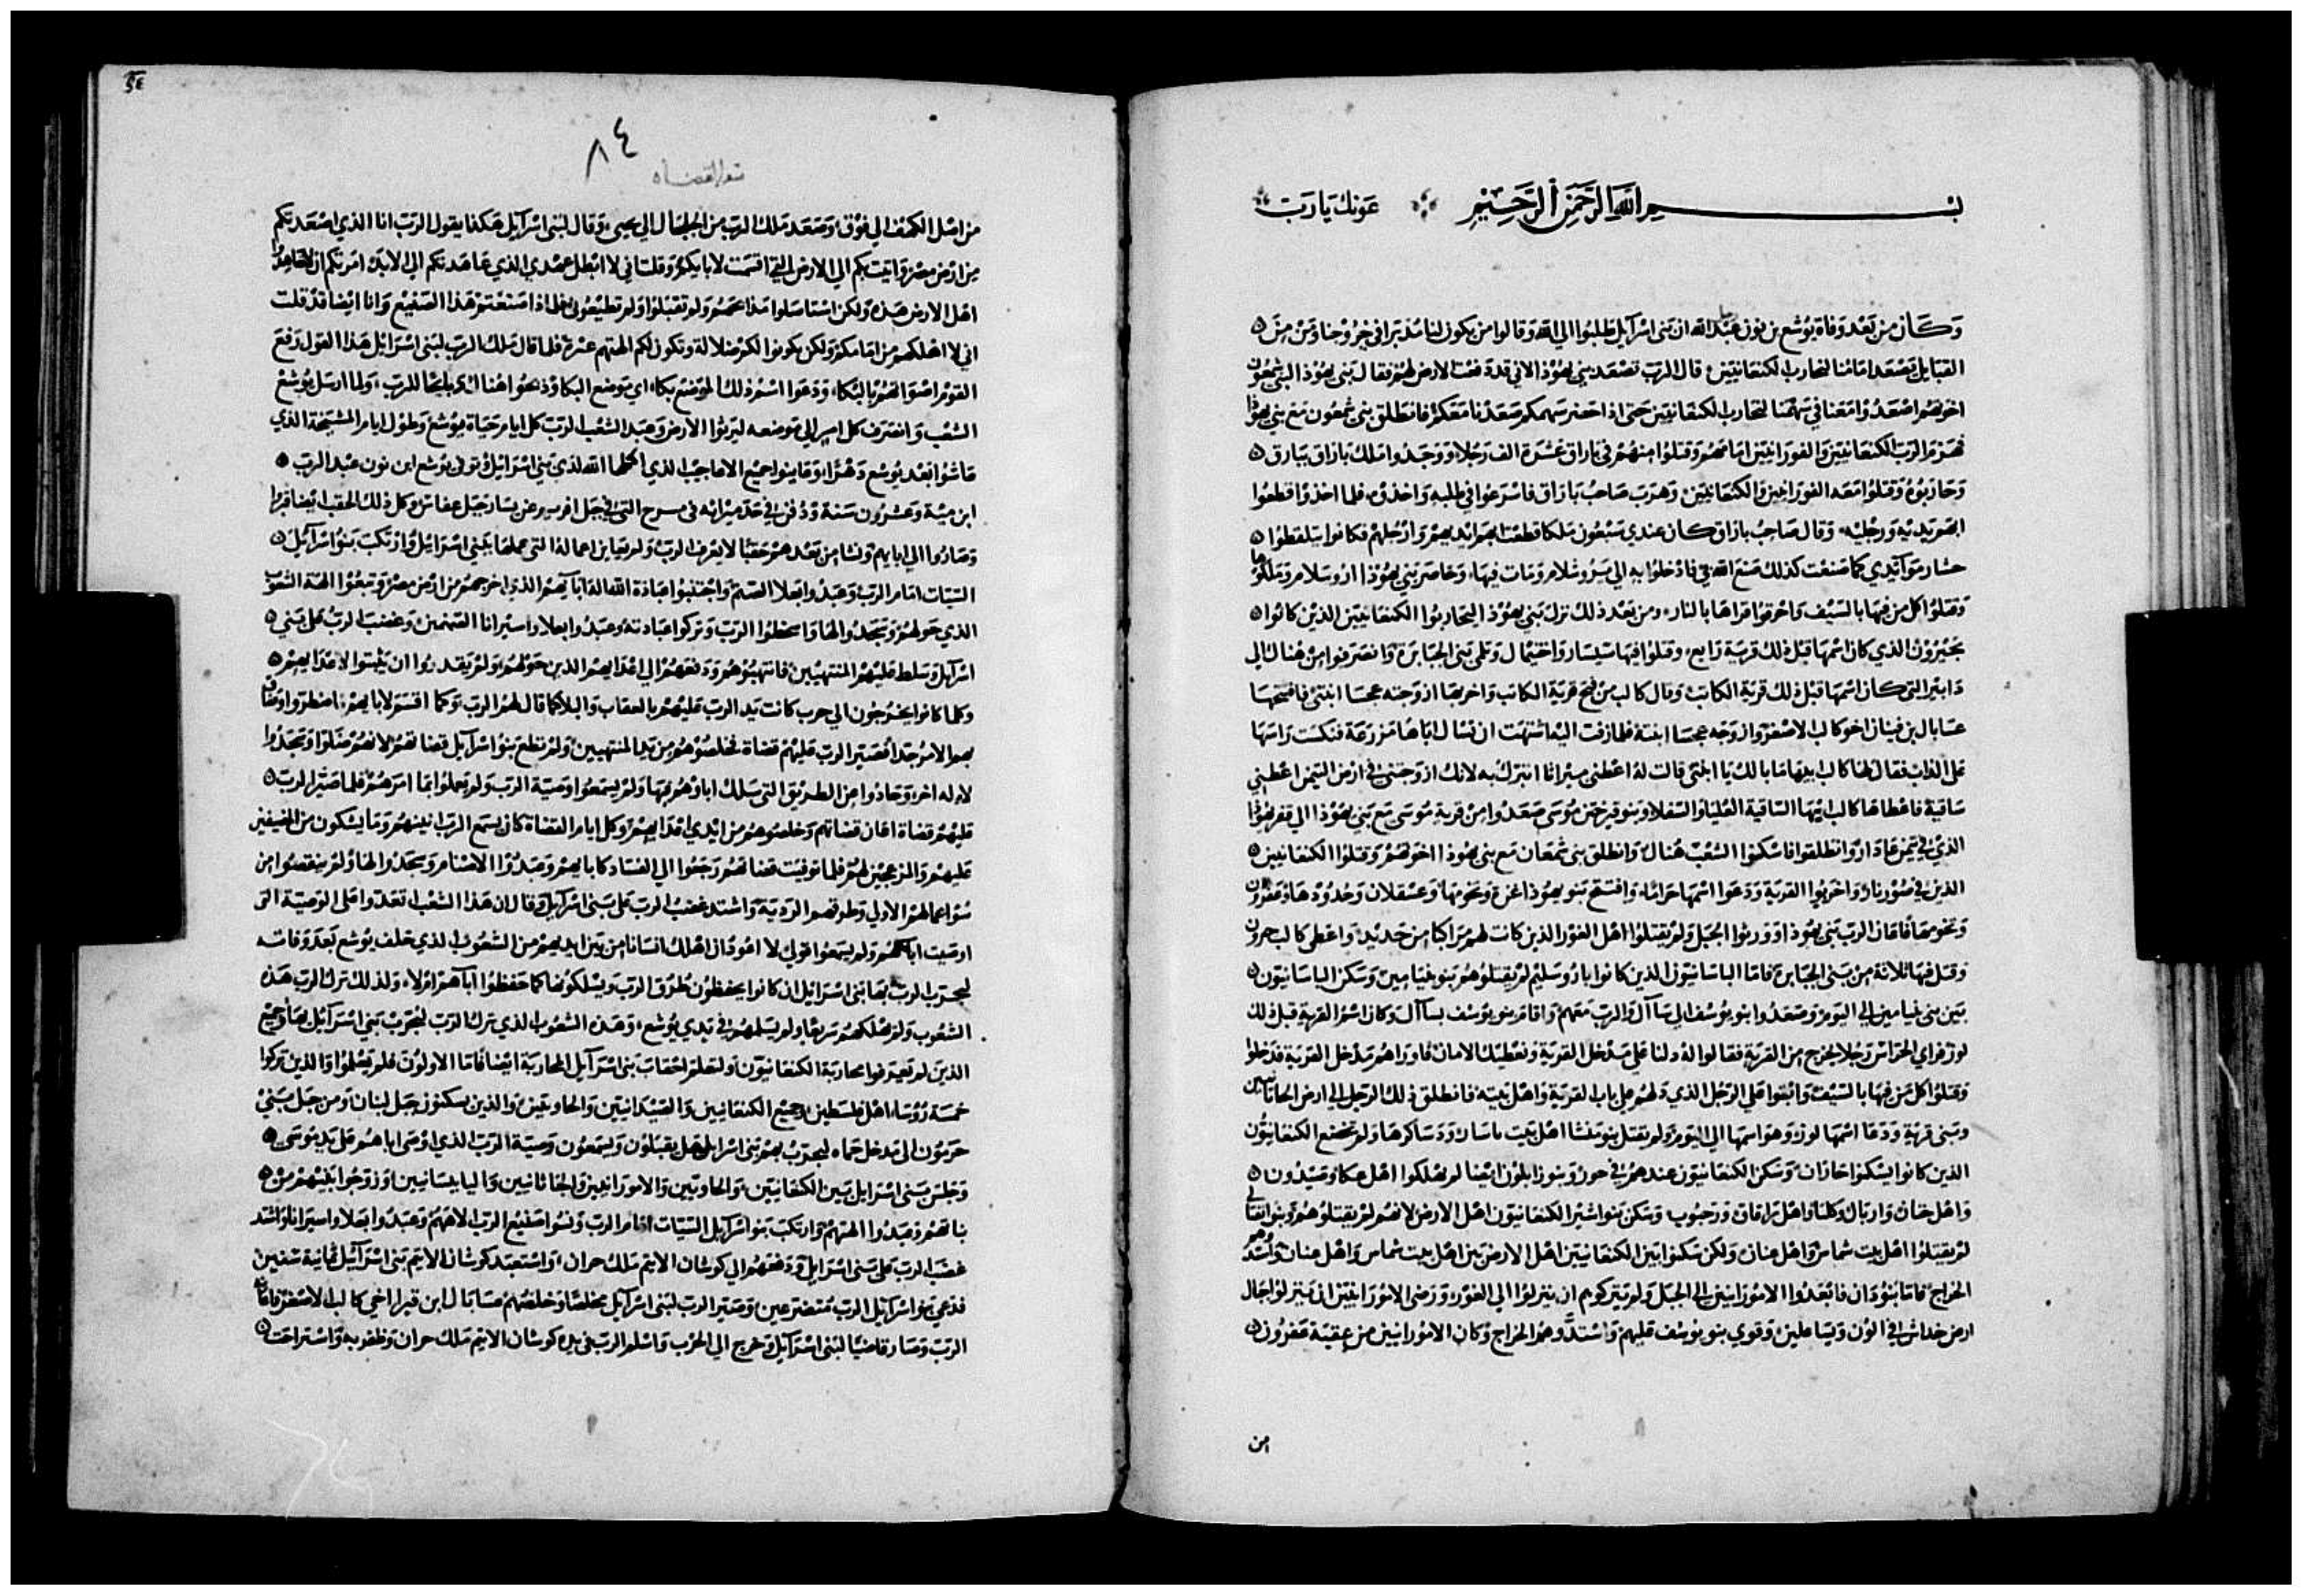 بسم الله الرحمن الرحيم عونك يا رب
وكان من بعد وفاة يوشع بن نون عبد الله ان بني اسرآيل طلبوا الي الله وقالوا من يكون لنا مدبرا في خروجنا ومن من
القبايل يصعد امامنا لنحارب الكنعانيين قال الرب تصعد بني يهوذا لاني قد دفعت الارض لهم فقال بني يهوذا لبني شمعون
اخوتهم اصعدوا معنا في سهمنا لنحارب الكنعانيين حتي اذا حضر سهمكم صعدنا معكم فانطلق بني شمعون مع بني يهوذا
فهزم الرب الكنعانيين والفورانيين امامهم وقتلوا منهم في باراق عشرة الف رجلا ووجدوا ملك بازاق ببازق
وحاربوه وقتلوا معه الفورانيين والكنعانيين وهرب صاحب بازاق فاسرعوا في طلبه واخذوه فلما اخذوا قطعوا
ابهم يديه ورجليه وقال صاحب بازاق كان عندي سبعون ملكا قطعت ابهم ايديهم وارجلهم فكانوا يتلقطوا
كما صنعت كذلك صنع الله بي فادخلوا به الي يروشلام ومات فيها وحاصر بني يهوذا اروسلام وملكوها
وقتلوا كل من فيها بالسيف واحرقوا قراها بالنار ومن بعد ذلك نزل بني يهوذا ليحاربوا الكنعانيين الذين كانوا
بحبرون الذي كان اسمها قبل ذلك قرية رابع وقتلوا فيها سيسار واخيمال وتلمي بني الجبابرة وانصرفوا من هناك الي
دابير التي كان اسمها قبل ذلك قرية الكاتب وقال كالب من فتح قرية الكاتب واخربها ازوجته عجسا ابنتي فافتتحها
عسابال بن فيناز اخو كالب الاصغر وازوجه عجسا ابنته فلما زفت اليه اشتهت ان تسال اباها مزرعة فنكست راسها
علي الداب فقال لها كالب ابيها ما بالك يا ابنتي قالت له اعطني ميراثا اتبرك به لانك ازوجتني في ارض التيمن اعطيني
ساقية فاعطاها كالب ابيها الساقية العليا والسفلا وبنو قير ختن موسي صعدوا من قرية موسي مع بني يهوذا الي قفر يهوذا
الذي في تيمن عادار وانطلقوا فاسكنوا الشعب هناك وانطلق بني شمعان مع بني يهوذا اخوتهم وقتلوا الكنعانيين
الذين في واخربوا القرية ودعوا اسمها حراما وافتتح بنو يهوذا غزة وتخومها وعسقلان وحدودها وعقرون
وتخومها فاعان الرب بني يهوذا وورثوا الجبل ولم يقتلوا اهل الغور الذين كانت لهم مراكبا من حديد واعطي كالب حبرون
وقتل فيها ثلاثة من بني الجبابرة فاما الباسانيون الذين كانوا باروسليم لم يقتلوهم بنو بنيامين وسكن الباسانيون
بين بني بنيامين الي اليوم وصعدوا بنو يوسف الي بيتاآل والرب معهم واقام بنو يوسف وكان اسم القرية قبل ذلك
لوز فراي الحراس رجلا يخرج من القرية فقالوا له دلنا علي مدخل القرية ونعطيك الامان فاوراهم مدخل القرية فدخلوا
وقتلوا كل من فيها بالسيف وابقوا علي الرجل الذي دلهم علي باب القرية واهل بيته فانطلق ذلك الرجل الي ارض
وبني قرية ودعا اسمها لوز وهو اسمها الي اليوم ولم يقتل بنو منشا اهل بيت باسان ودساكرها ولم تخضع الكنعانيون
الذين كانوا يسكنوا وسكن الكنعانيون عندهم في وبنو زابلون ايضا لم يهلكوا اهل عكا وصيدون
وسكن بنو اشير الكنعانيون اهل الارض لانهم لم يقتلوهم وبنو نفتالي
لم يقتلوا اهل بيت شماس واهل عنان ولكن سكنوا بين الكنعانيين اهل الارض بين اهل بيت شماس واهل عنان
الخراج فاما بنو دان فابعدوا الامورانيين الي الجبل ولم يتركوهم ان ينزلوا الي الغور ورضي الامورانيين ان ينزلوا جبال
ارض خداش في الون وبسا علين وقوي بنو يوسف عليهم واستدوهم الخراج وكان الامورانيين من عقبة عقرون
من
٨٤
سفر القضاه
من اصل الكهف الي فوق وصعد ملك الرب من الجلجال الي يحيي وقال لبني اسرآيل هكذا يقول الرب انا الذي اصعدتكم
من ارض مصر واتيت بكم الي الارض التي اقسمت لابايكم وقلت اني لا ابطل عهدي الذي عاهدتكم الي الابد امرتكم ان لا تعاهدوا
اهل الارض هذه ولكن استاصلوا ولم تقبلوا ولم تطيعوني فلماذا صنعتم هذا الصنيع وانا ايضا قد قلت
اني لا اهلكهم من امامكم ولكن يكونوا لكم ضلالة وتكون لكم الهتهم عثرة فلما قال ملك الرب لبني اسرائيل هذا القول رفع
القوم اصواتهم بالبكاء ودعوا اسم ذلك الموضع بكاء اي موضع البكا وذبحوا هناك ذبايحا للرب ولما ارسل يوشع
الشعب وانصرف كل امير الي موضعه ليرثوا الارض وعبد الشعب الرب كل ايام حياة يوشع وطول ايام المشيخة الذي
عاشوا بعد يوشع دهرا وعاينوا جميع الاعاجيب الذي اكملها الله لذي بني اسرائيل وتوفي يوشع ابن نون عبد الرب
ابن مية وعشرون سنة ودفن في حد ميراثه في سرح التي في جبل افريم عن يسار جبل عفاش وكل ذلك الحقب ايضا قبروا
وصاروا الي ابايهم ونشا من بعدهم حقبا لا يعرف الرب ولم يعاين اعماله التي عملها ببني اسرائيل وارتكب بنو اسرآيل
السيات امام الرب وعبدوا بعلا الصنم واجتنبوا عبادة الله اله اباهم الذي اخرجهم من ارض مصر وتبعوا الهة الشعوب
الذي حولهم وسجدوا لها واسخطوا الرب وتركوا عبادته وعبدوا بعلا واستيرانا الصنمين وغضب الرب علي بني
اسرآيل وسلط عليهم المنتهبين فانتهبوهم ودفعهم الي اعدايهم الذين حولهم ولم يقدروا ان يثبتوا لاعدايهم
وكلما كانوا يخرجون الي حرب كانت يد الرب عليهم بالعقاب والبلا كما قال لهم الرب وكما اقسم لابايهم اضطروا وضاق
بهم الامر جدا فصير الرب عليهم قضاة فخلصوهم من يد المنتهبين ولم تطع بنو اسرآيل قضاتهم لانهم ضلوا وسجدوا
لاله اخر وحادوا من الطريق التي سلك اباؤهم بها ولم يسمعوا وصية الرب ولم يعملوا بما امرهم فلما صير الرب
عليهم قضاة اعان قضاتهم وخلصوهم من ايدي اعدايهم وكل ايام القضاة كان يسمع الرب انينهم وما يشكون من المضيقين
عليهم والمزعجين لهم فلما توفيت قضاتهم رجعوا الي الفساد كابايهم وعبدوا الاصنام وسجدوا لها ولم ينقصوا من
سو اعمالهم الاولي وطرقهم الردية واشتد غضب الرب علي بني اسرآيل وقال ان هذا الشعب تعدوا علي الوصية التي
اوصيت اباهم ولم يسمعوا قولي لا اعود ان اهلك انسانا من بين ايديهم من الشعوب الذي خلف يوشع بعد وفاته
ليجرب الرب بها بني اسرائيل ان كانوا يحفظون طرق الرب ويسلكونها كما حفظوا اباهم ام لا ولذلك ترك الرب هذه
الشعوب ولم يهلكهم سريعا ولم يسلمهم في يدي يوشع وهذه الشعوب الذي ترك الرب ليجرب بني اسرآيل بها وجميع
الذين لم يعرفوا محاربة الكنعانيون ولتعلم احقاب بني اسرآيل المحاربة ايضا فاما الاولون فلم يعلموا والذين تركوا
خمسة رؤساء اهل فلسطين وجميع الكنعانيين والصيدانيين والحاويين والذين يسكنون جبل لبنان ومن جبل بني
حرمون الي مدخل حماه ليجرب بهم بني اسرائيل هل يقبلون ويسمعون وصية الرب الذي اوصي اباهم علي يد موسي
وجلس بني اسرائيل بين الكنعانيين والحاويين والامورانيين والجاثانيين واليابسانيين وزوجوا ابنيهم من
بناتهم وعبدوا الهتهم وارتكب بنو اسرآيل السيات امام الرب ونسوا صنيع الرب الاههم وعبدوا بعلا واسيرانا واشتد
غضب الرب علي بني اسرايل ودفعهم الي كوشان الاثيم ملك حران واستعبد كوشان الاثيم بني اسرآئيل ثمانية سنين
فدعي بنو اسرآيل الرب متضرعين وصير الرب لبني اسرآيل مخلصا وخلصهم عسابال ابن قيرا اخي كالب الاصغر
الرب وصار قاضيا لبني اسرآيل وخرج الي الحرب واسلم الرب في يده كوشان الاثيم ملك حران وظفر به واستراحت